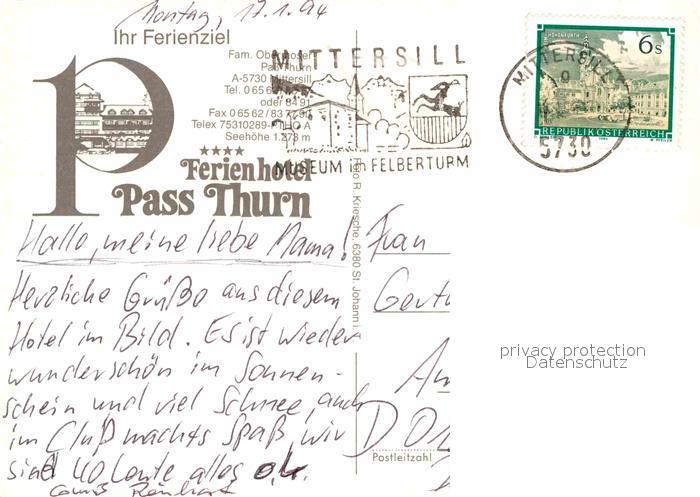 Montag, 17.1.94
Ihr Ferienziel
Fam. Obermoser
Pass Thurn
A-5730 Mittersill
Tel. 0 65 62 /
oder 84 91
Fax 0 65 62 / 83 77-90
Telex 75310289-PTHO A
Seehöhe 1.273 m
****
Ferienhotel
Pass Thurn
MITTERSILL
MUSEUM im FELBERTURM
HOHENFURTH
6 S
REPUBLIK ÖSTERREICH
MITTERSILL
5730
Foto R. Kriesche, 6380 St. Johann i. T.
Hallo, meine liebe Mama!
Herzliche Grüße aus diesem
Hotel im Bild. Es ist wieder
wunderschön im Sonnen-
schein und viel Schnee, auch
im Club machts Spaß, wir
sind 40 Leute alles o.k.
Reinhart
Frau
Gert
An
D
Postleitzahl
privacy protection
Datenschutz